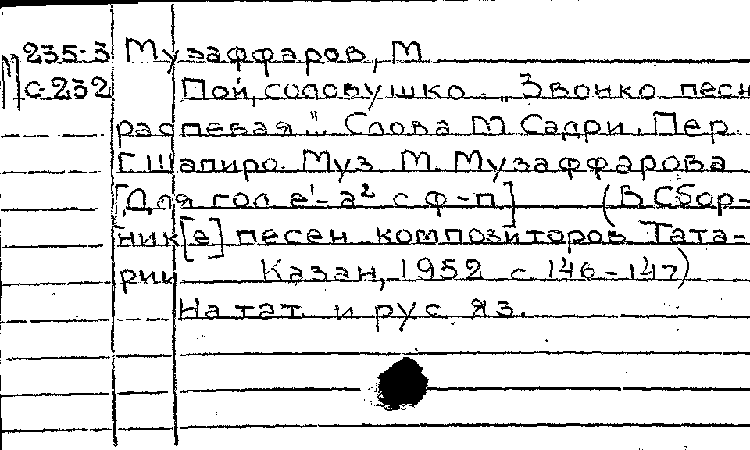 М 235-3 Музаффаров, М
с-232 Пой, соловушко. „Звонко песн
распевая". Слова М Садри. Пер.
Г. Шапиро. Муз М. Музаффарова
[Для гол е¹-а² с ф-п] (В Сбор-
ник[е] песен композиторов Тата-
рии Казан, 1952 с 146-147)
На тат. и рус яз.